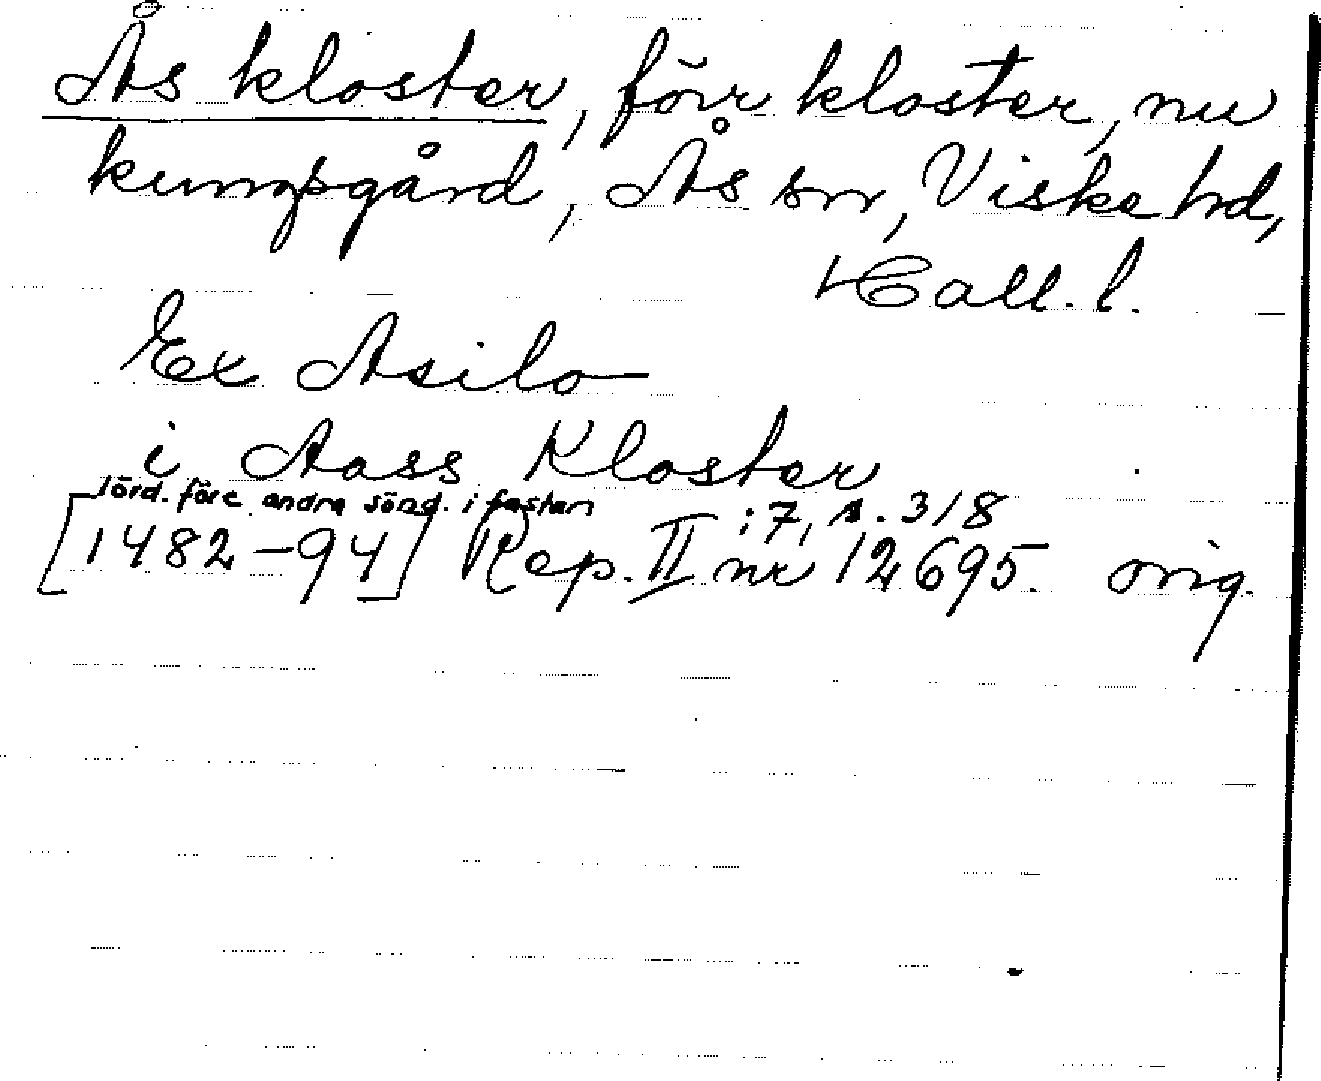 Ås kloster, förr kloster, nu
kungsgård, Ås sn, Viske hd,
Hall. l.
Ex Asilo
i Aass Kloster
lörd. före andra sönd. i fastan
:7, s. 318
[1482–94] Rep. II nr 12695. orig.